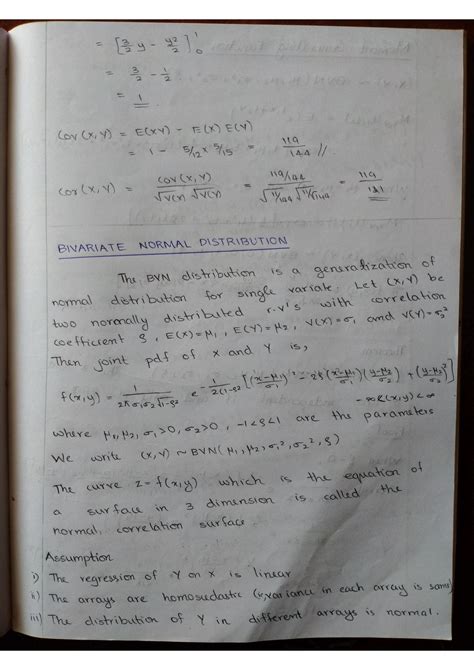 = [3/2 y - y²/2]₀¹
= 3/2 - 1/2
= 1
Cov(X,Y) = E(XY) - E(X) E(Y)
= 1 - 5/12 × 5/15 = 119/144 //
Cor(X,Y) = Cov(X,Y)/√V(X) √V(Y) = 119/144 / √11/144 √11/144 = 119/
BIVARIATE NORMAL DISTRIBUTION
The BVN distribution is a generalization of
normal distribution for single variate. Let (X,Y) be
two normally distributed r.v's with correlation
coefficient ρ, E(X)=μ₁, E(Y)=μ₂, V(X)=σ₁ and V(Y)=σ₂²
Then joint pdf of X and Y is,
f(x,y) = 1/2πσ₁σ₂√1-ρ² e^-1/2(1-ρ²) [(x-μ₁/σ₁)² - 2ρ(x-μ₁/σ₁)(y-μ₂/σ₂) + (y-μ₂/σ₂)²]
-∞<(x,y)<∞
where μ₁,μ₂,σ₁>0,σ₂>0, -1<ρ<1 are the parameters
We write (X,Y) ~ BVN(μ₁,μ₂,σ₁²,σ₂²,ρ)
The curve z=f(x,y) which is the equation of
a surface in 3 dimension is called the
normal correlation surface
Assumption
i) The regression of Y on X is linear
ii) The arrays are homosedastic (variance in each array is same)
iii) The distribution of Y in different arrays is normal.